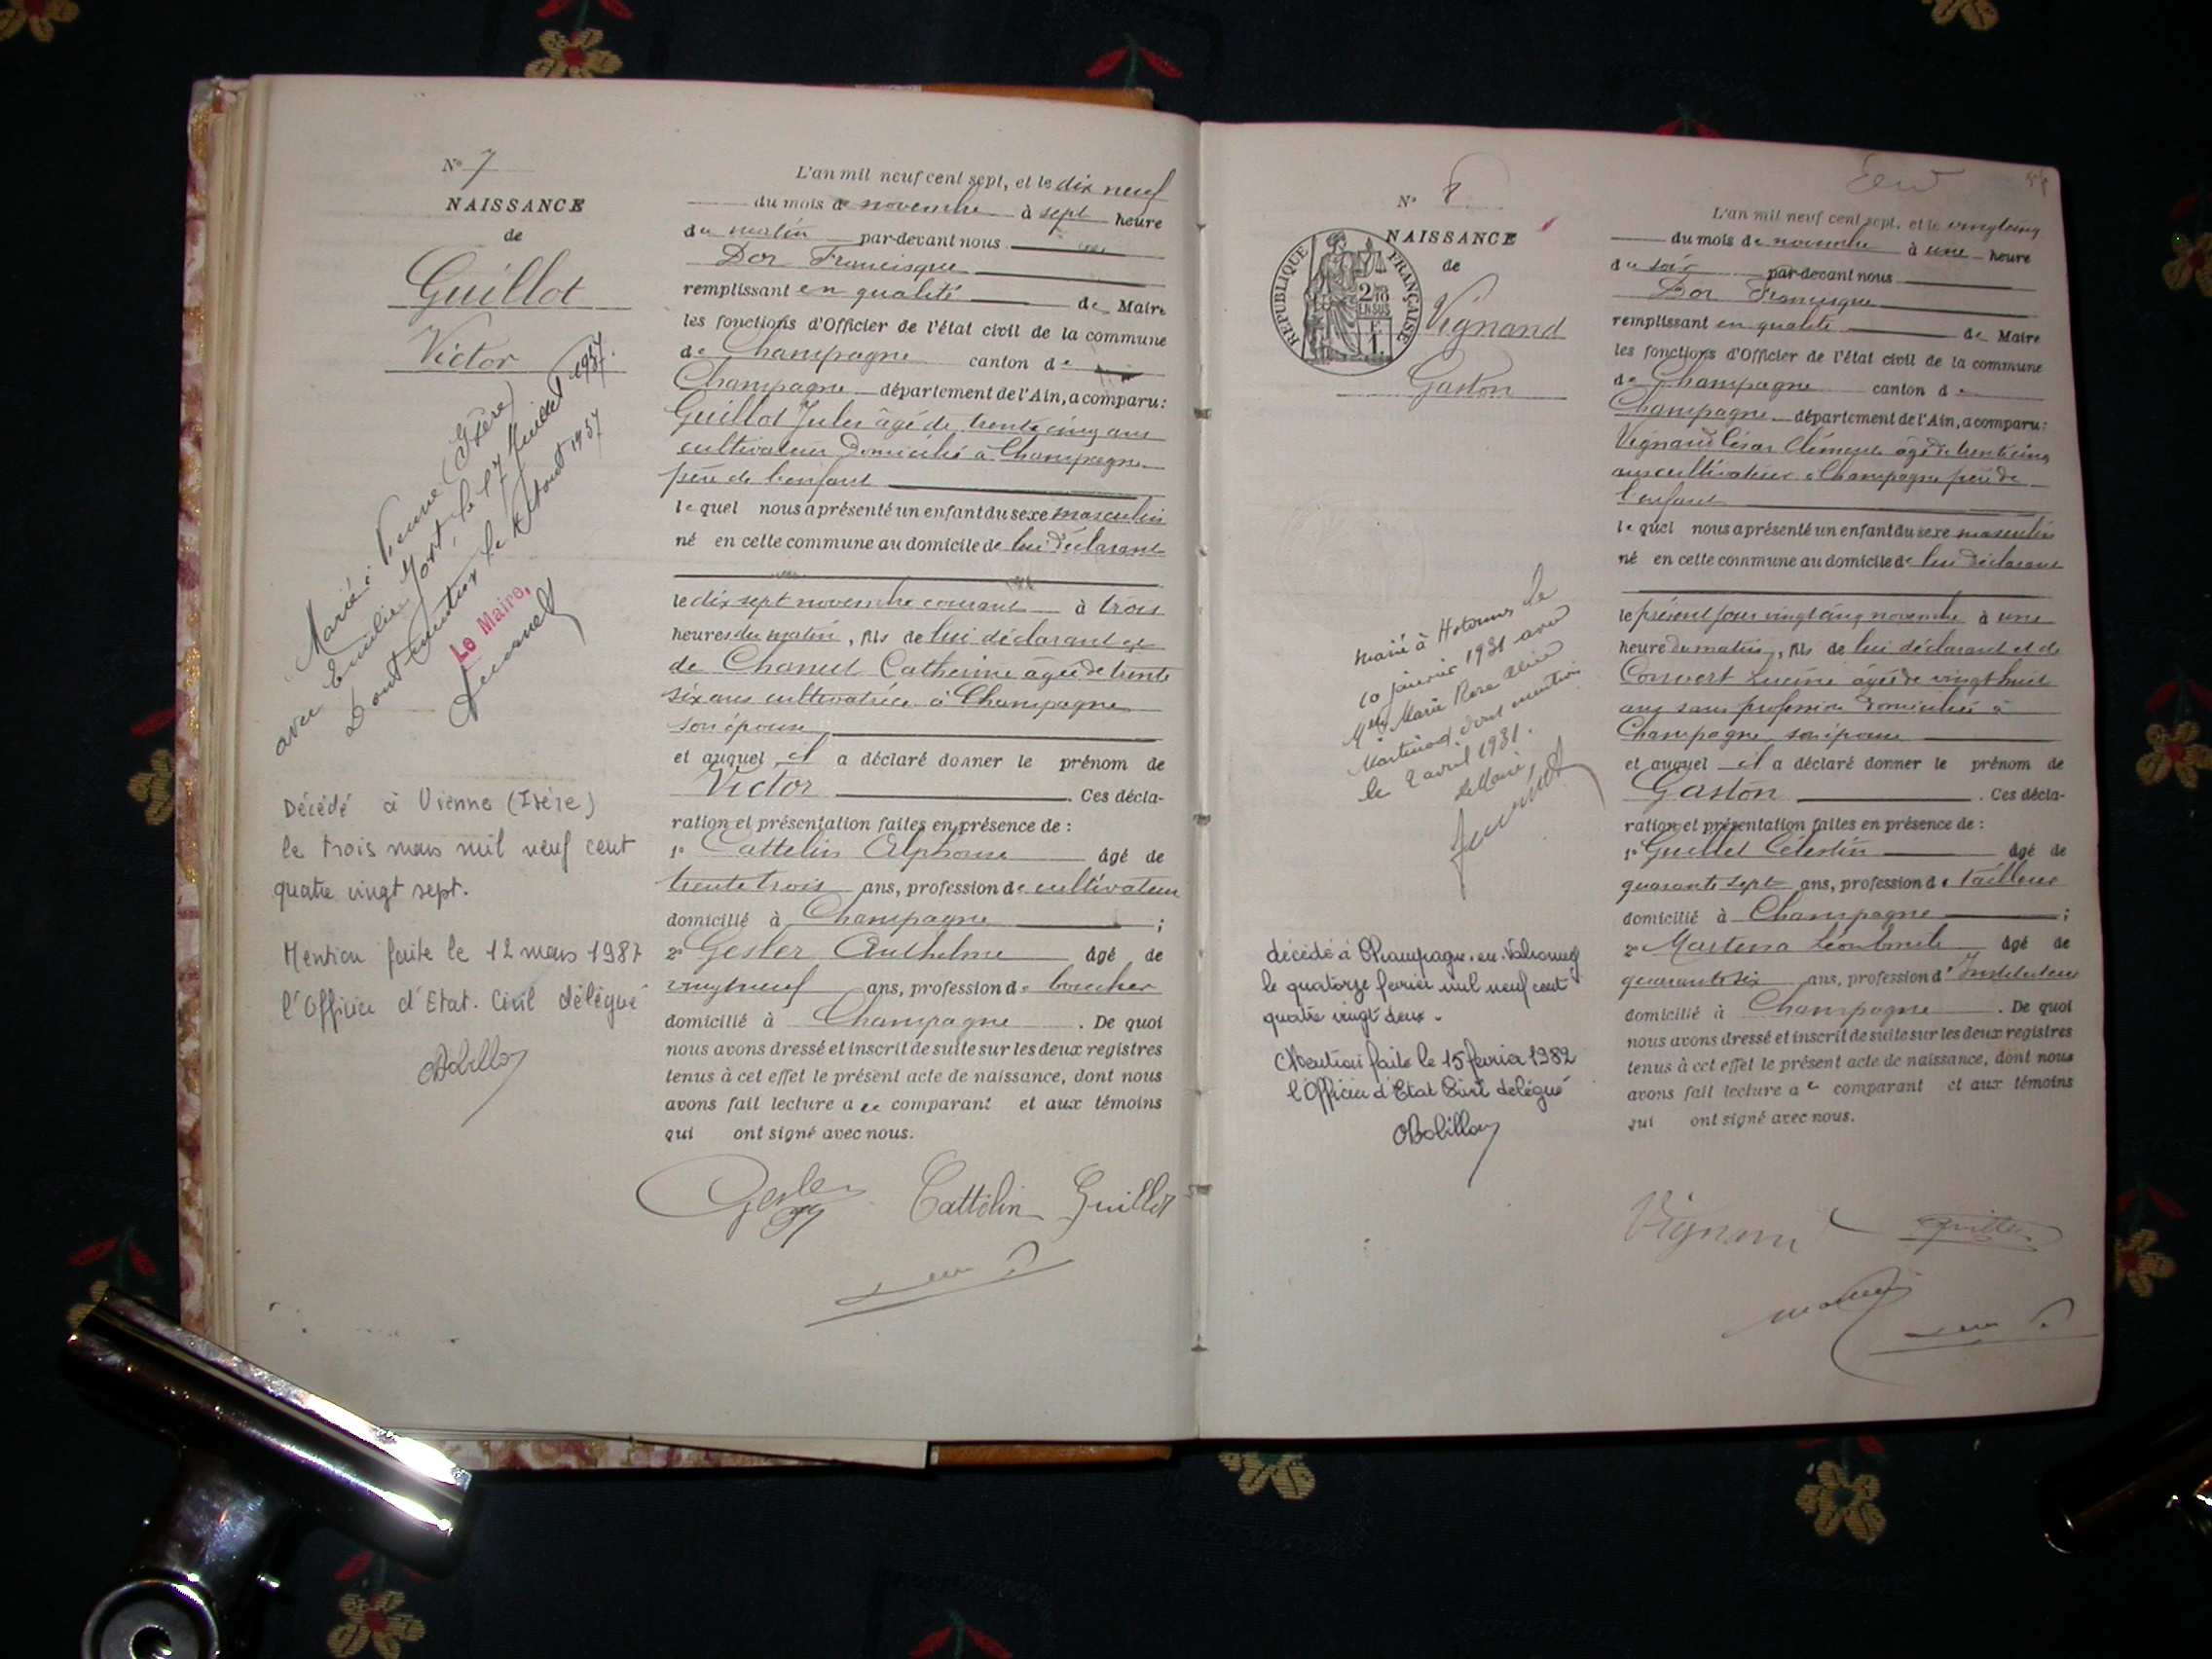 N° 7
NAISSANCE
de
Guillot
Victor
Marié à Vienne (Isère)
avec Emilie le 17 Juillet 1937.
Dont mention le 4 Aout 1937
Le Maire,
Décédé à Vienne (Isère)
le trois mars mil neuf cent
quatre vingt sept.
Mention faite le 12 mars 1987
l'Officier d'Etat. Civil délégué
L'an mil neuf cent sept, et le dix neuf
du mois de novembre à sept heure
du matin par-devant nous
Dor Francisque
remplissant en qualité de Maire
les fonctions d'Officier de l'état civil de la commune
de Champagne canton de
Champagne département de l'Ain, a comparu:
Guillot Jules âgé de trente cinq ans
cultivateur domicilié à Champagne
père de l'enfant
lequel nous a présenté un enfant du sexe masculin
né en cette commune au domicile de lui déclarant
le dix sept novembre courant à trois
heures du matin, fils de lui déclarant et
de Chanut Catherine âgée de trente
six ans cultivatrice à Champagne
son épouse
et auquel il a déclaré donner le prénom de
Victor . Ces décla-
ration et présentation faites en présence de :
1° Cattelin Alphonse âgé de
trente trois ans, profession de cultivateur
domicilié à Champagne ;
2° Gesler Anthelme âgé de
vingt neuf ans, profession de boucher
domicilié à Champagne . De quoi
nous avons dressé et inscrit de suite sur les deux registres
tenus à cet effet le présent acte de naissance, dont nous
avons fait lecture au comparant et aux témoins
qui ont signé avec nous.
Gesler Cattelin Guillot
N° 8
NAISSANCE
de
RÉPUBLIQUE FRANÇAISE
2/10
EN SUS
Vignand
Gaston
marié à Hotonnes le
10 janvier 1931 avec
Melle Marie Rose
Martinod dont mention
le 2 avril 1931.
Le Maire,
décédé à Champagne-en-Valromey
le quatorze fevrier mil neuf cent
quatre vingt deux.
Mention faite le 15 fevrier 1982
l'Officier d'Etat Civil délégué
L'an mil neuf cent sept, et le vingt cinq
du mois de novembre à une heure
du soir par-devant nous
Dor Francisque
remplissant en qualité de Maire
les fonctions d'Officier de l'état civil de la commune
de Champagne canton de
Champagne département de l'Ain, a comparu:
Vignand César Clément âgé de trente cinq
ans cultivateur à Champagne père de
l'enfant
lequel nous a présenté un enfant du sexe masculin
né en cette commune au domicile de lui déclarant
le présent jour vingt cinq novembre à une
heure du matin, fils de lui déclarant et de
Convert âgée de vingt huit
ans sans profession domiciliée à
Champagne son épouse
et auquel il a déclaré donner le prénom de
Gaston . Ces décla-
ration et présentation faites en présence de :
1° Guillet Célestin âgé de
quarante sept ans, profession de tailleur
domicilié à Champagne ;
2° âgé de
quarante six ans, profession d'Instituteur
domicilié à Champagne . De quoi
nous avons dressé et inscrit de suite sur les deux registres
tenus à cet effet le présent acte de naissance, dont nous
avons fait lecture au comparant et aux témoins
qui ont signé avec nous.